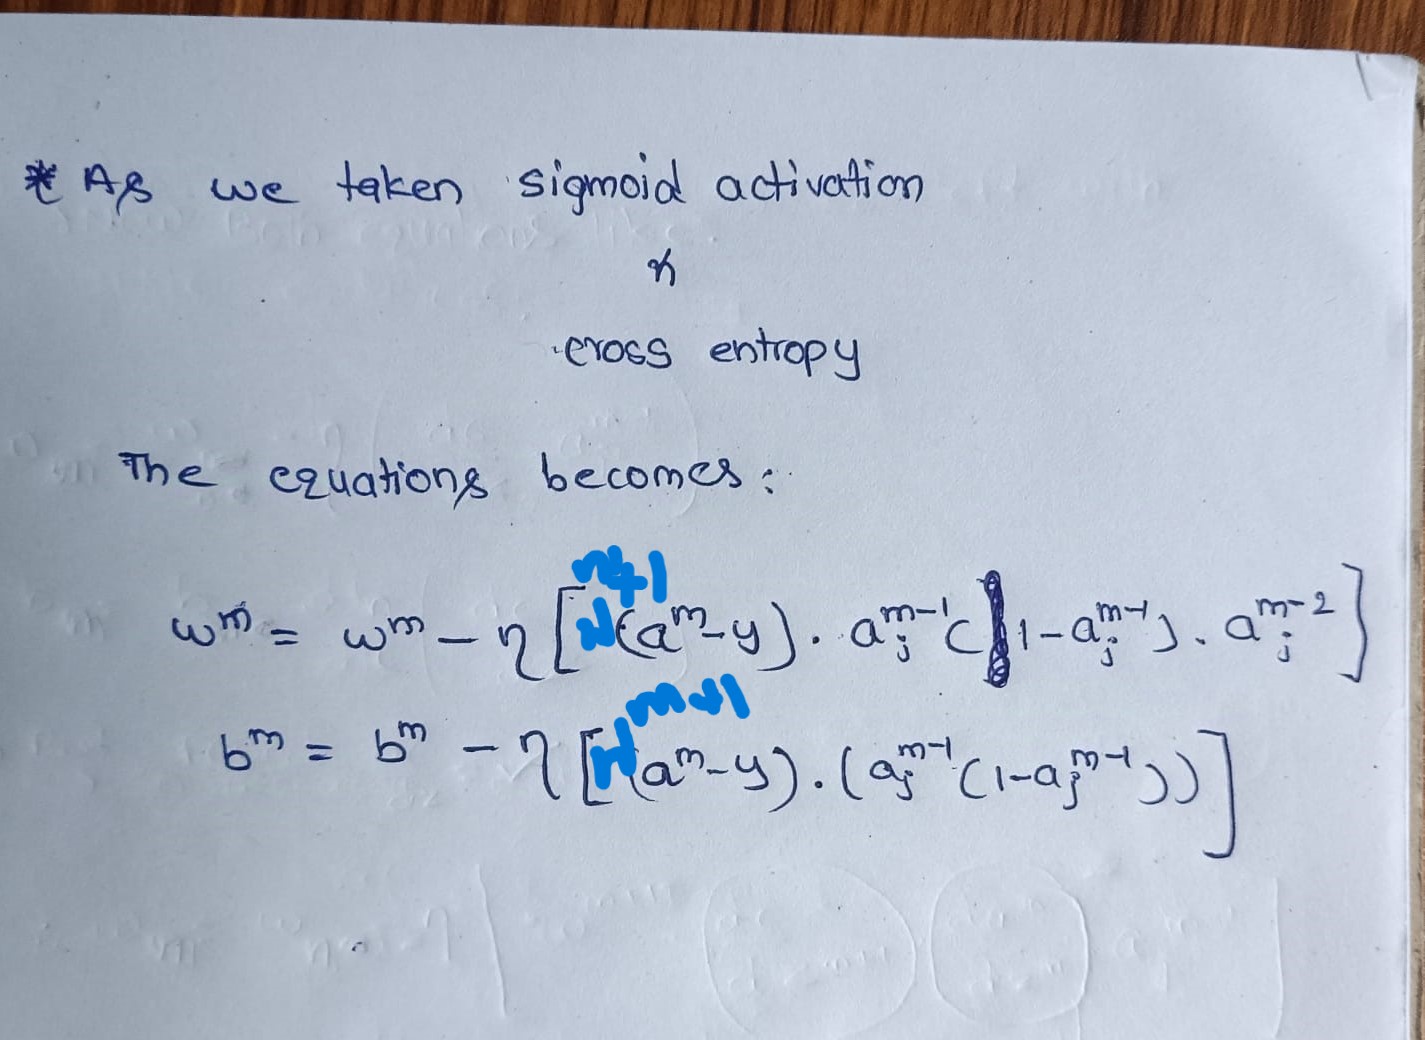 * As we taken sigmoid activation
&
cross entropy
The equations becomes:
w^m = w^m - η [w^{m+1}(a^m - y) . a_j^{m-1}(1 - a_j^{m-1}) . a_j^{m-2}]
b^m = b^m - η [w^{m+1}(a^m - y) . (a_j^{m-1}(1 - a_j^{m-1}))]